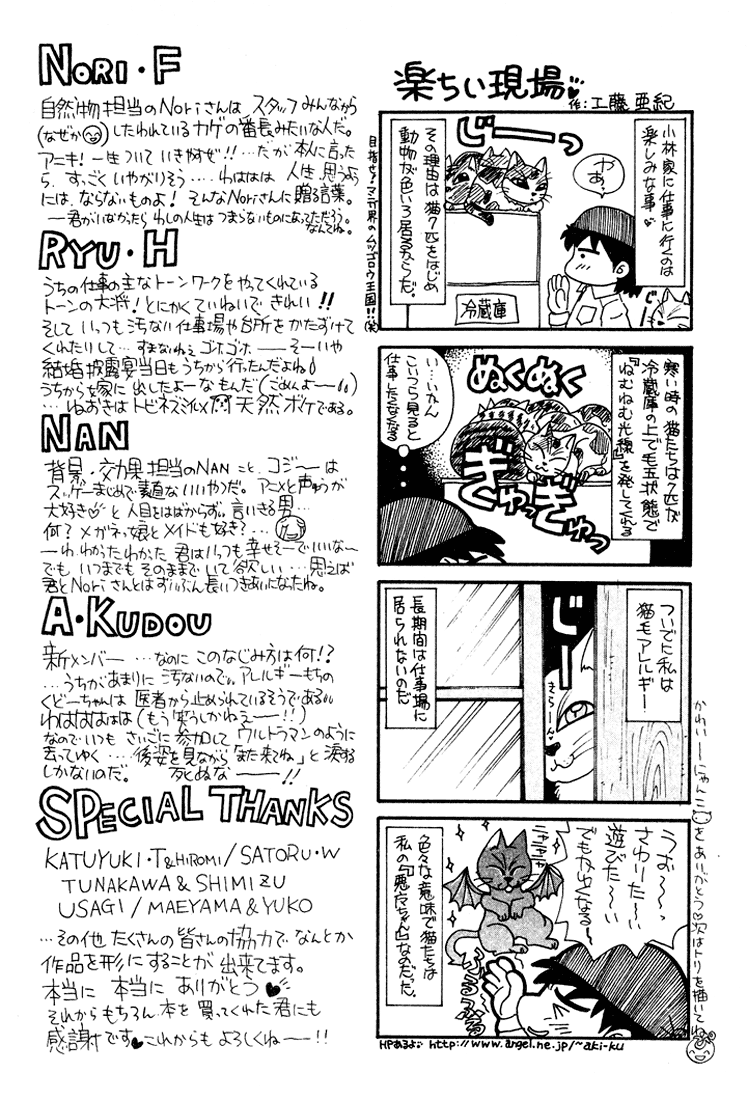 NORI・F
自然物担当のNoriさんは スタッフみんなから
(なぜか)したわれているカゲの番長みたいな人だ。
アニキ！一生ついていきやすぜ!!…だが本人に言った
ら、すっごくいやがりそう……わははは 人生、思うよう
には、ならないものよ！そんなNoriさんに贈る言葉。
―君がいなかったら わしの人生は つまらないものになってただろう。
なんてね。
RYU・H
うちの仕事の主なトーンワークをやってくれている
トーンの大将！とにかくていねいで きれい!!
そして いっつも 汚ない仕事場や台所をかたずけて
くれたりして…すまないねぇ ゴホゴホ ――そーいや
結婚披露宴当日もうちから行ったんだよね
うちから嫁に出したよーなもんだ(ごめんよー)
…ねおきはトビネズミ似× 天然ボケである。
NAN
背景・交効果担当のNANこと、コジ～は
スッゲーまじめで素直ないいやつだ。アニメと声ゅうが
大好き♡と人目をはばからず。言いきる男…
何？メガネっ娘とメイドも好き？…
―わ、わかったわかった 君はいつも幸せそーでいいな～
でも いつまでも そのままでいて欲しい…思えば
君とNoriさんとはずいぶん長いつきあいになったね。
A・KUDOU
新メンバー …なのに このなじみ方は何!?
…うちがあまりに汚ないので、アレルギーもちの
くどーちゃんは 医者から止められているそうである
わははははは(もう笑うしかねぇ――!!)
なのでいつも さいごに 参加して ウルトラマンのように
去ってゆく……後姿を見ながら「また来てね」と涙する
しかないのだ。 死ぬな――!!
SPECIAL THANKS
KATUYUKI・T&HIROMI/SATORU・W
TUNAKAWA & SHIMIZU
USAGI/MAEYAMA & YUKO
…その他 たくさんの皆さんの協力で なんとか
作品を形にすることが 出来てます。
本当に 本当に ありがとう♥
それからもちろん 本を 買ってくれた君にも
感謝です♥これからも よろしくね――!!
楽ちぃ現場♥
作:工藤 亜紀
小林家に仕事に行くのは
楽しみな事♥
やあっ
じーーっ
じーっ
その理由は猫7匹をはじめ
動物が色いろ居るからだ。
冷蔵庫
目指せ！マンガ界のムツゴロウ王国!!(笑)
寒い時の猫たちは7匹が
冷蔵庫の上で毛玉状態で
『ねむねむ光線』を発してくれる
ぬくぬく
ぎゅっぎゅっ
い…いかん
こいつら見ると
仕事したくなくなる
ついでに私は
猫毛アレルギー
じー
きらーん
長期間は仕事場に
居られないのだ
うおぉ～っ
さわりた～い
遊びた～い
でもかゆくなる～
色々な意味で猫たちは
私の『悪魔ちゃん』なのだ。
かわいーにゃんこをありがとう♡次はトリを描いてね
HPあるよ♪ http://www.angel.ne.jp/~aki-ku